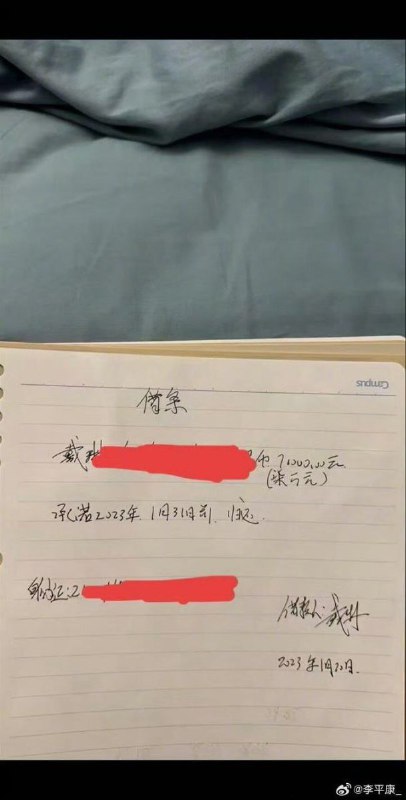 Campus
借条
戴琳 币 7000.00元
(柒千元)
承若2023年 1月31日前 归还.
身份证:2
借款人: 戴琳
2023年1月20日.
@李平康_